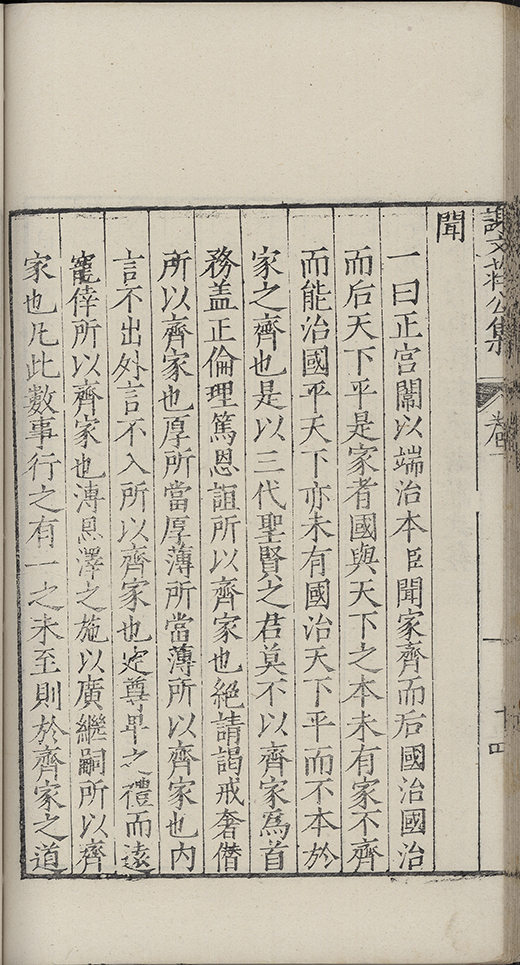 謝文莊公集 卷一 十四
聞
一曰正宮闈以端治本臣聞家齊而后國治國治
而后天下平是家者國與天下之本未有家不齊
而能治國平天下亦未有國治天下平而不本於
家之齊也是以三代聖賢之君莫不以齊家爲首
務盖正倫理篤恩誼所以齊家也絶請謁戒奢僭
所以齊家也厚所當厚薄所當薄所以齊家也内
言不出外言不入所以齊家也定尊卑之禮而遠
寵倖所以齊家也溥恩澤之施以廣繼嗣所以齊
家也凡此數事行之有一之未至則於齊家之道